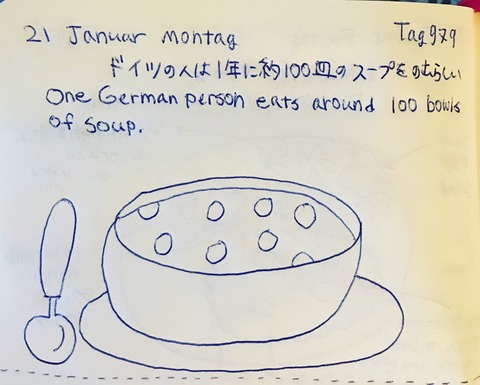 21 Januar montag Tag979
ドイツの人は1年に約100皿のスープをのむらしい
One German person eats around 100 bowls
of soup.